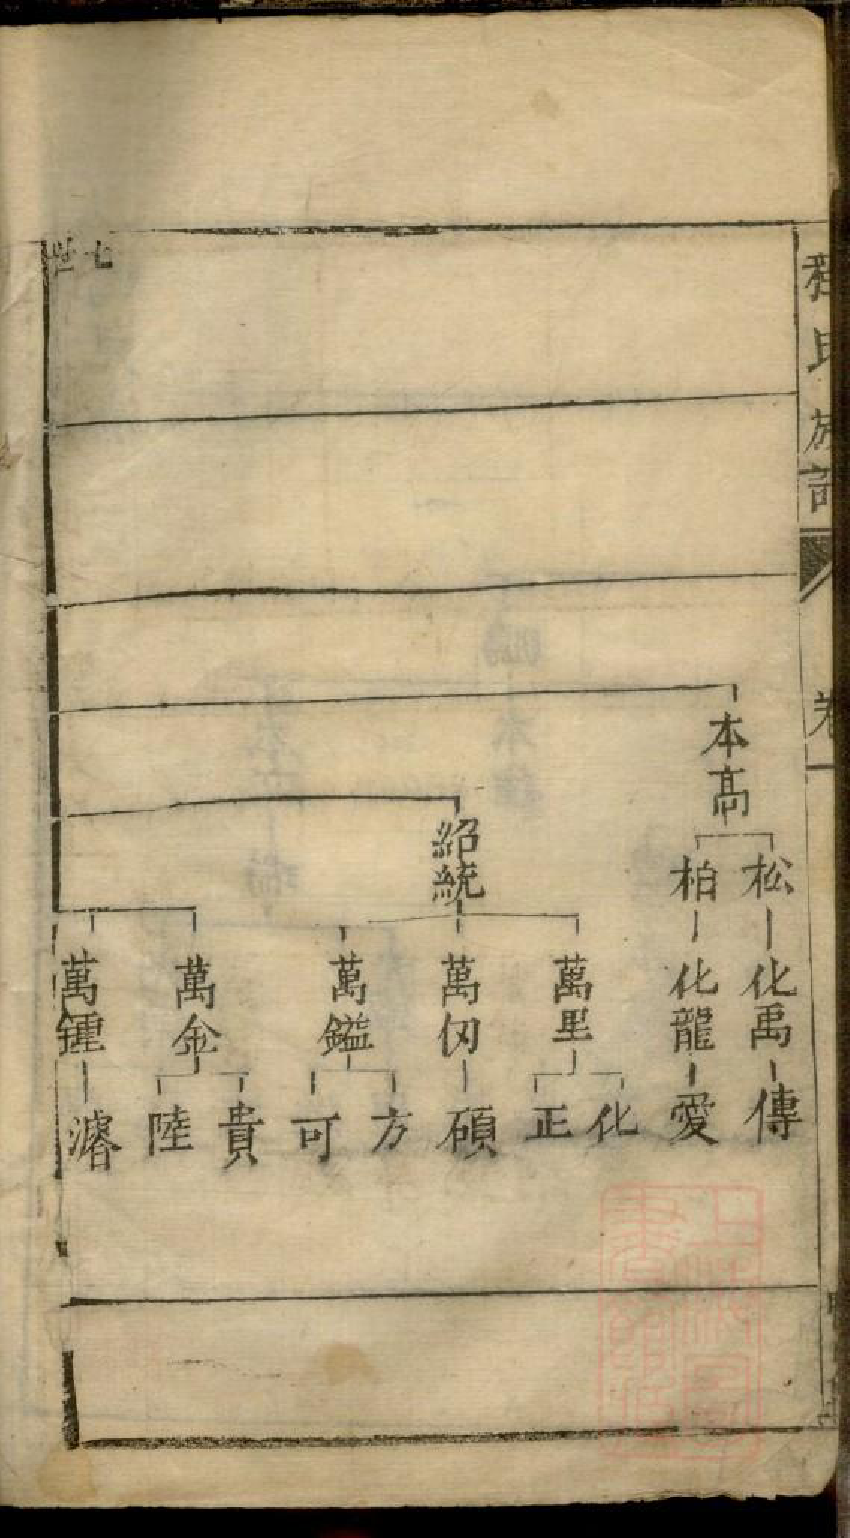 程氏族譜
卷一
本高
松
化禹
傳
柏
化龍
愛
紹統
萬里
化
正
萬仞
碩
萬鎰
方
可
萬金
貴
陸
萬鍾
濬
七世
上海圖書館藏